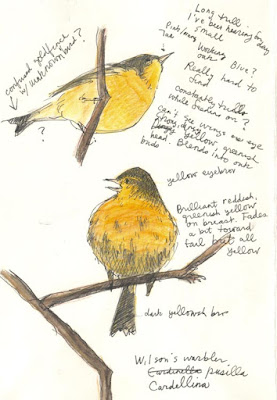 Long trill...
I've been hearing
small
Working Blue?
oak
Really hard to
find
constantly trills
while trains on?
Can't see wings or eye
yellow, greenish
head. Blends into oak
buds
confused goldfinch
w/ unknown bird?
?
?
yellow eyebrow
Brilliant reddish,
greenish yellow
on breast. Fades
a bit toward
tail but all
yellow
dark yellowish brow
Wilson's warbler
pusilla
Cardellina